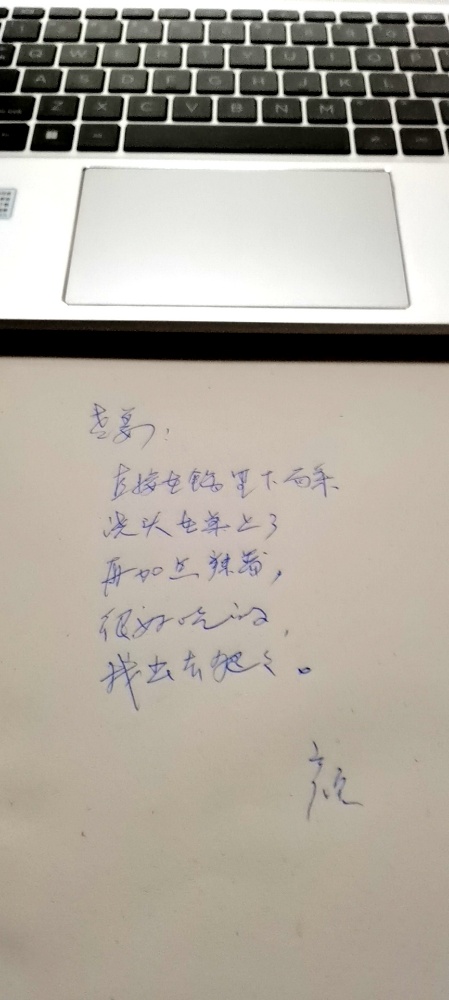 Q W E R T Y U I O P
A S D F G H J K L
Z X C V B N M
直接在锅里下面条
浇头在桌上了
再加点辣酱,
很好吃的,
我出去了。